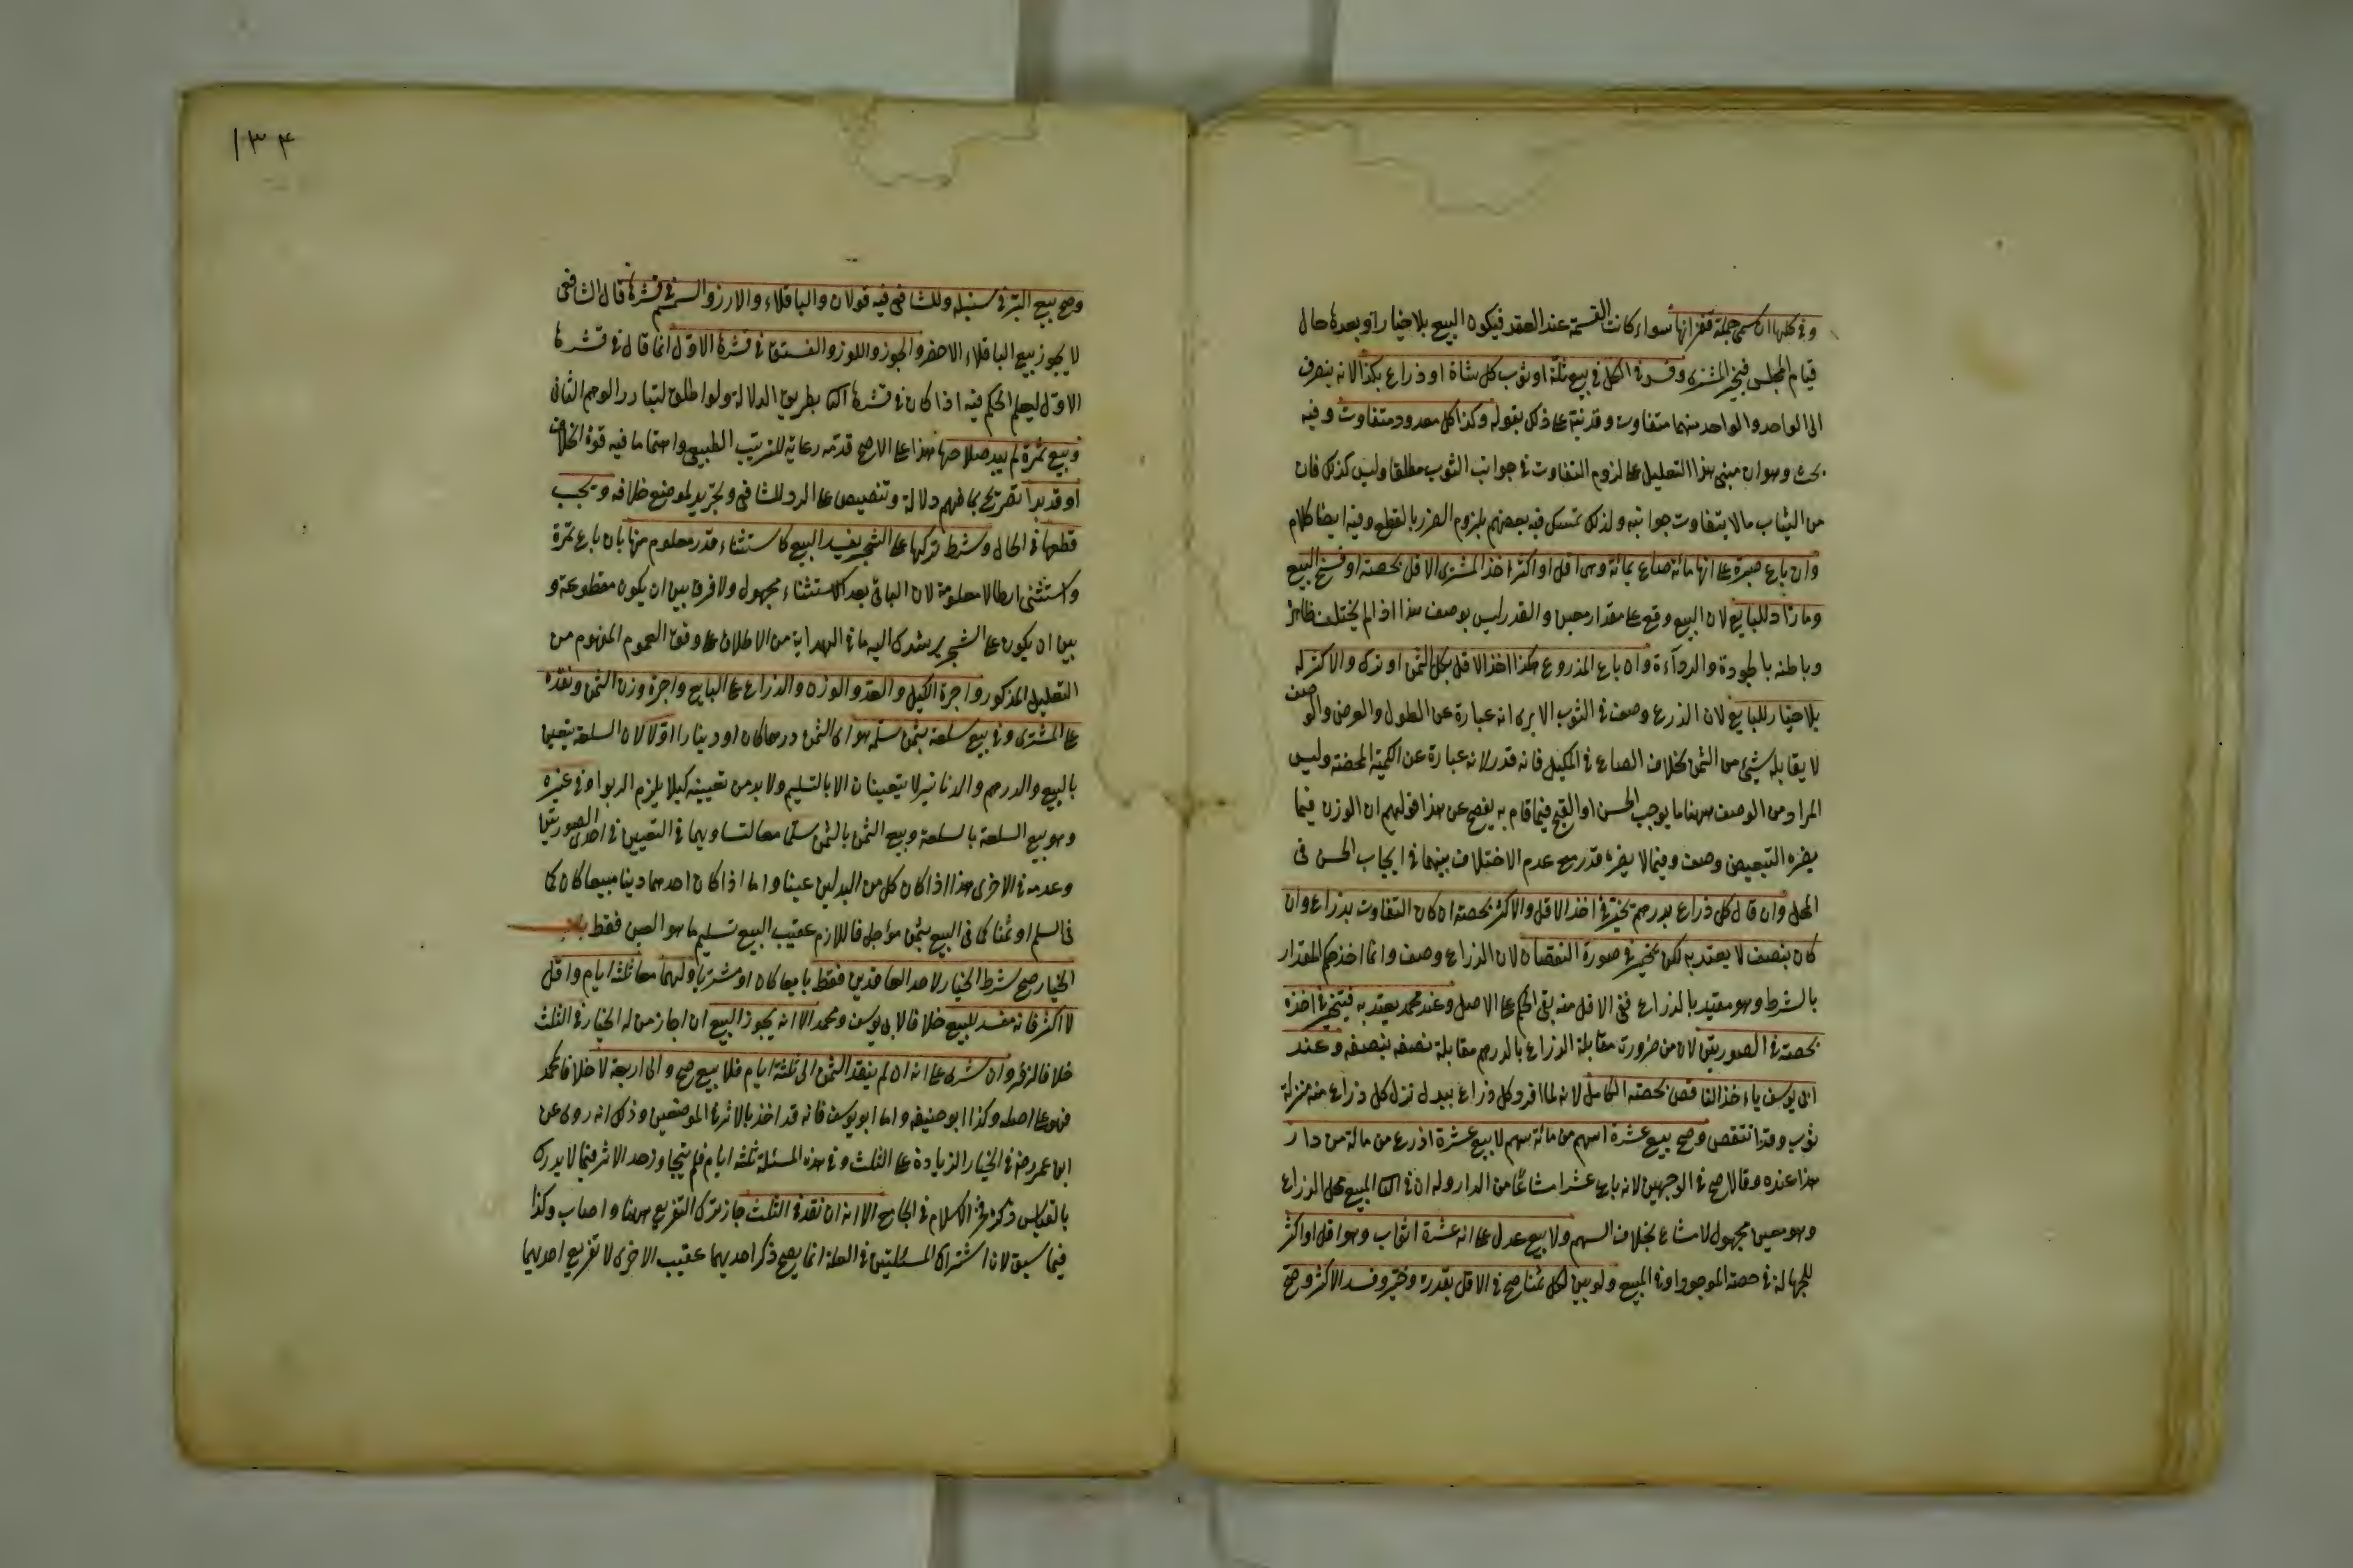 وفي كلها ان سمى جملة قفزانها سواء كانت القسمة عند العقد فيكون البيع بلا خيار او بعده حال
قيام المجلس فيخير المشترى وفسد في الكل في بيع ثلة او ثوب كل شاة او ذراع بكذا لانه ينصرف
الى الواحد والواحد منهما متفاوت وقد نبه على ذلك بقوله وكذا كل معدود متفاوت وفيه
بحث وهو ان مبنى هذا التعليل على لزوم التفاوت في جوانب الثوب مطلقا وليس كذلك فان
من الثياب ما لا يتفاوت جوانبه ولذلك تمسك فيه بعضهم بلزوم الضرر بالقطع وفيه ايضا كلام
وان باع صبرة على انها مائة صاع بمائة وهى اقل او اكثر اخذ المشترى الاقل بحصته او فسخ البيع
وما زاد للبايع لان البيع وقع على مقدار معين والقدر ليس بوصف هذا اذا لم يختلف ظاهره
وباطنه بالجودة والرداءة وان باع المذروع هكذا اخذ الاقل بكل الثمن او ترك والاكثر له
بلا خيار للبايع لان الذرع وصف في الثوب الا يرى انه عبارة عن الطول والعرض والوصف
لا يقابله شيئ من الثمن بخلاف الصاع في المكيل فانه قدر لانه عبارة عن الكمية المحضة وليس
المراد من الوصف ههنا ما يوجب الحسن او القبح فيما قام به يفصح عن هذا قولهم ان الوزن فيما
يضره التبعيض وصف وفيما لا يضره قدر مع عدم الاختلاف بينهما في ايجاب الحسن في
المحل وان قال كل ذراع بدرهم يخير في اخذ الاقل والاكثر بحصته ان كان التفاوت بذراع وان
كان بنصف لا يعتد به لكن يخير في صورة النقصان لان الذراع وصف وانما اخذ حكم المقدار
بالشرط وهو مقيد بالذراع ففى الاقل منه بقى الحكم على الاصل وعند محمد يعتد به فيتخير في اخذه
بحصته في الصورتين لان من ضرورت مقابلة الذراع بالدرهم مقابلة نصفه بنصفه وعند
ابى يوسف ياءخذ الناقص بحصته الكامل لانه لما افرد كل ذراع ببدل نزل كل ذراع منه منزلة
ثوب وقد انتقص وصح بيع عشرة اسهم من مائة سهم لا بيع عشرة اذرع من مائة من دار
هذا عنده وقالا صح في الوجهين لانه باع عشرا مشاعا من الدار وله ان في الثانى المبيع محل الذراع
وهو معين مجهول لا مشاع بخلاف السهم ولا بيع عدل على انه عشرة اثواب وهو اقل او اكثر
للجهالة في حصة الموجود او في المبيع ولو بين لكل ثمنا صح في الاقل بقدره وخير وفسد الاكثر وصح
١٣۴
وصح بيع البر في سنبله وللشافعى فيه قولان والباقلاء والارز والسمسم في قشرها قال الشافعى
لا يجوز بيع الباقلاء الاخضر والجوز واللوز والفستق في قشرها الاول انما قال في قشرها
الاول ليعلم الحكم فيه اذا كان في قشرها الثانى بطريق الدلالة ولو اطلق لتبادر الوهم الثانى
وبيع ثمرة لم يبد صلاحها هذا على الاصح قدمه رعاية للترتيب الطبيعى واهتماما فيه قوة الخلاف
او قد بدا تصريح بما فهم دلالة وتنصيص على الرد للشافعى وتحرير لموضع خلافه ويجب
قطعها في الحال وشرط تركها على الشجر يفسد البيع كاستثناء قدر معلوم منها بان باع ثمرة
واستثنى ارطالا معلومة لان الباقى بعد الاستثناء مجهول ولا فرق بين ان يكون مقطوعة و
بين ان يكون على الشجر يرشدك اليه ما في الهداية من الاطلاق على وفق العموم المفهوم من
التعليل المذكور واجرة الكيل والعد والوزن والذراع على البايع واجرة وزن الثمن ونقده
على المشترى وفى بيع سلعة بثمن سلم هو اى الثمن درهما كان او دينارا اولا لان السلعة يتعين
بالبيع والدرهم والدنانير لا يتعينان الا بالتسليم ولا بد من تعيينه كيلا يلزم الربوا وفي غيره
وهو بيع السلعة بالسلعة وبيع الثمن بالثمن سلما معا لتساويهما في التعيين في احدى الصورتين
وعدمه في الاخرى هذا اذا كان كل من البدلين عينا واما اذا كان احدهما دينا مبيعا كان كما
في السلم او ثمنا كما في البيع بثمن مؤاجل فاللازم عقيب البيع تسليم ما هو العين فقط باب
الخيار صح شرط الخيار لاحد العاقدين فقط بايعا كان او مشتريا ولهما معا ثلثة ايام واقل
لا اكثر فانه مفسد للبيع خلافا لابى يوسف ومحمد الا انه يجوز البيع ان اجاز من له الخيار في الثلث
خلافا لزفر وان شرى على انه ان لم ينقد الثمن الى ثلثة ايام فلا بيع صح والى اربعة لا خلافا لمحمد
فهو على اصله وكذا ابو حنيفه واما ابو يوسف فانه قد اخذ بالاثر في الموضعين وذلك انه روى عن
ابن عمر رضه في الخيار الزيادة على الثلث وفي هذه المسئلة ثلثة ايام فلم يتجاوز حد الاثر فيما لا يدرك
بالقياس ذكره فخر الاسلام في الجامع الا انه ان نقد في الثلث جاز ترك التفريع ههنا واصاب وكذا
فيما سبق لان اشتراك المسئلتين في العلة انما يصح ذكر احديهما عقيب الاخرى لا تفريع احديهما